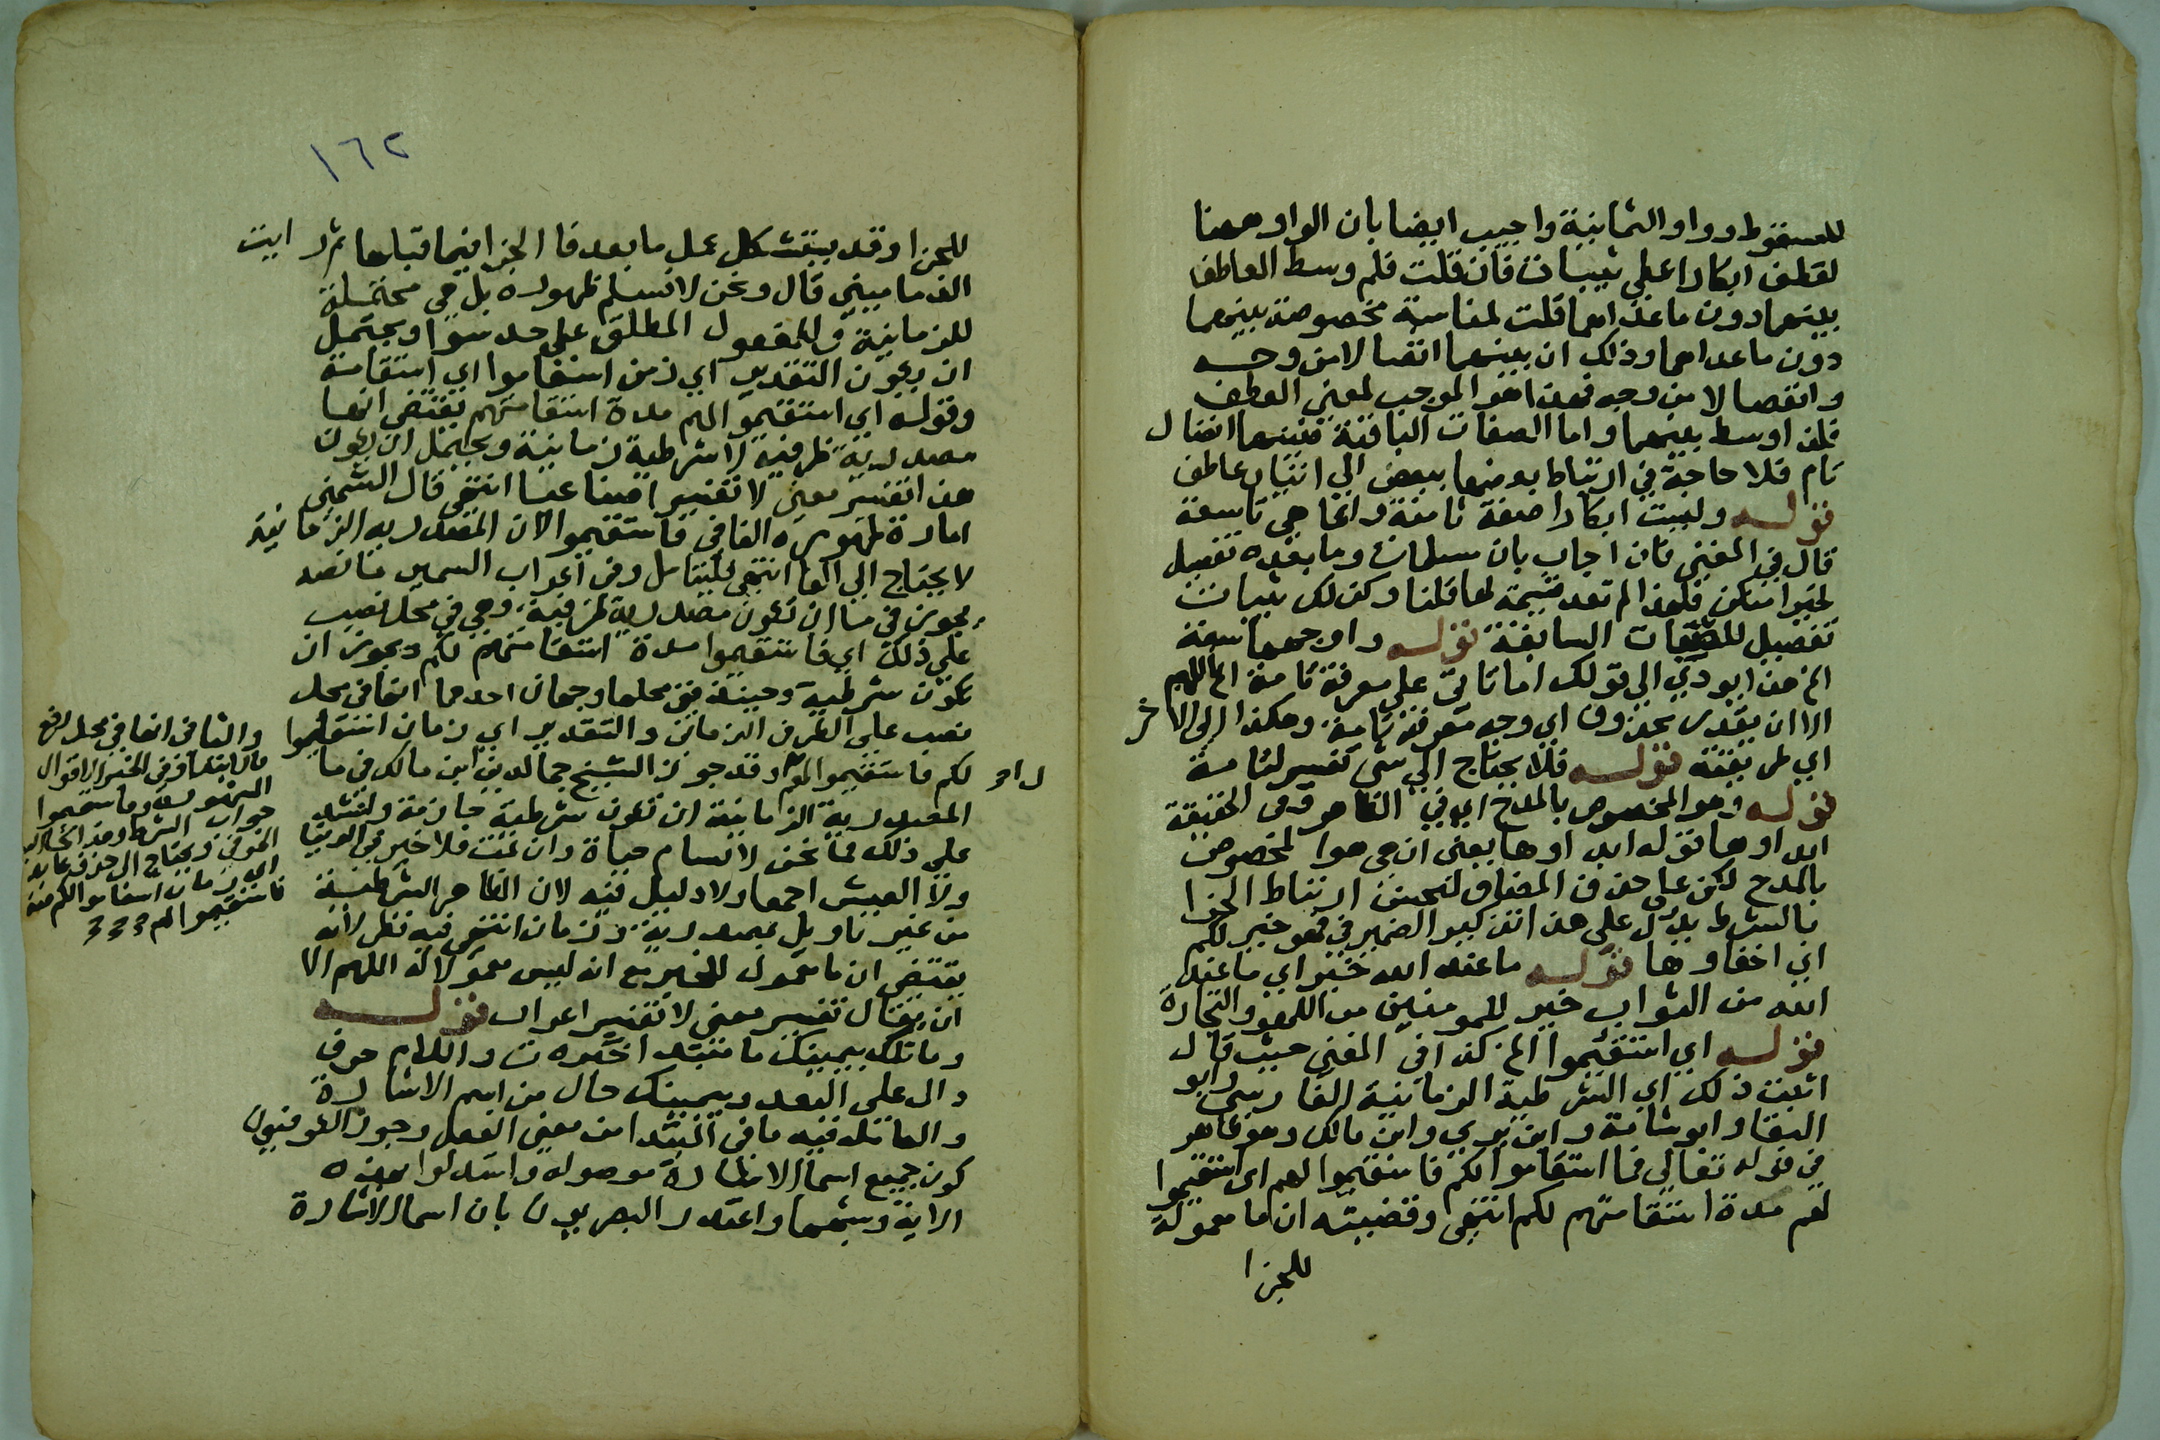 للسقوط وواو الثمانية واجيب ايضا بان الواو ههنا
لعطف ابكارا على ثيبات فان قلت فلم وسط العاطف
بينهما دون ما عداهما قلت لمناسبة مخصوصة بينهما
دون ما عداهما وذلك ان بينهما اتصالا من وجه
وانفصالا من وجه فهذا هو الموجب لمعنى العطف
فلذا وسط بينهما واما الصفات الباقية فبينها اتصال
تام فلا حاجة في ارتباط بعضها ببعض الى اتيان عاطف
قوله وليست ابكارا صفة ثامنة وانما هي تاسعة
قال في المغني فان اجاب بان مسلمات وما بعده تفصيل
لخيرا منكن فلهذا لم تعد قسيمة لها قلنا وكذلك ثيبات
تفصيل للصفات السابقة قوله واوجهها سعة
الخ هذا يودي الى قولك اما تاتي على معرفة تامة الخ اللهم
الا ان يقدر محذوف اي وجه معرفة تامة وهكذا الى الاخر
اي طريقته قوله فلا يحتاج الى شي تفسير لتامة
قوله وهو المخصوص بالمدح اي في الظاهر وفي الحقيقة
ابداوها قوله ابداوها يعني ان هي هو المخصوص
بالمدح لكن على حذف المضاف ليحسن ارتباط الجزا
بالشرط يدل على هذا تذكير الضمير في فهو خير لكم
اي اخفاوها قوله ما عند الله خير اي ما عند
الله من الثواب خير للمومنين من اللهو والتجارة
قوله اي استقيموا الخ كذا في المغني حيث قال
اثبت ذلك اي الشرطية الزمانية الفارسي وابو
البقا وابو شامة وابن بري وابن مالك وهو ظاهر
في قوله تعالى فما استقاموا لكم فاستقيموا لهم اي استقيموا
لهم مدة استقامتهم لكم انتهى وقضيته ان ما معمولة
للجزا
١٦٢
للجزا وقد يستشكل عمل ما بعد فا الجزا فيما قبلها ثم رايت
الدماميني قال ونحن لا نسلم ظهوره بل هي محتملة
للزمانية وللمفعول المطلق على حد سوا ويحتمل
ان يكون التقدير اي زمن استقاموا اي استقامة
وقوله اي استقيموا لهم مدة استقامتهم يقتضي انها
مصدرية ظرفية لا شرطية زمانية ويحتمل ان يكون
هذا تفسير معنى لا تفسير صناعيا انتهى قال الشمني
امارة ظهوره الفا في فاستقيموا لان المصدرية الزمانية
لا يحتاج الى الفا انتهى فليتامل وفي اعراب السمين ما نصه
يجوز في ما ان تكون مصدرية ظرفية وهي في محل نصب
على ذلك اي فاستقيموا مدة استقامتهم لكم ويجوز ان
تكون شرطية وحينئذ ففي محلها وجهان احدهما انها في محل
نصب على الظرف الزماني والتقدير اي زمان استقاموا
لكم فاستقيموا لهم وقد جوز الشيخ جمال الدين ابن مالك في ما
المصدرية الزمانية ان تكون شرطية جازمة وانشد
على ذلك فما نحن لا نسام حياة وان تمت فلا خير في الدنيا
ولا العيش اجمعا ولا دليل فيه لان الظاهر الشرطية
من غير تاويل بمصدرية وزمان انتهى فيه نظر لانه
يقتضي ان ما معمول للخير مع انه ليس معمولا له اللهم الا
ان يقال تفسير معنى لا تفسير اعراب قوله
وما تلك بيمينك ما مبتدا خبره ت واللام حرف
دال على البعد وبيمينك حال من اسم الاشارة
والعامل فيه ما في المبتدا من معنى الفعل وجوز الكوفيون
كون جميع اسما الاشارة موصوله واستدلوا بهذه
الاية وشبهها واعتذر البصريون بان اسما الاشارة
والثاني انها في محل رفع
بالابتدا وفي الخبر الاقوال
المشهورة وفاستقيموا
جواب الشرط وهذا نحا اليه
الحوفي ويحتاج الى حذف عايد
اي زمان استقاموا لكم فيه
فاستقيموا لهم